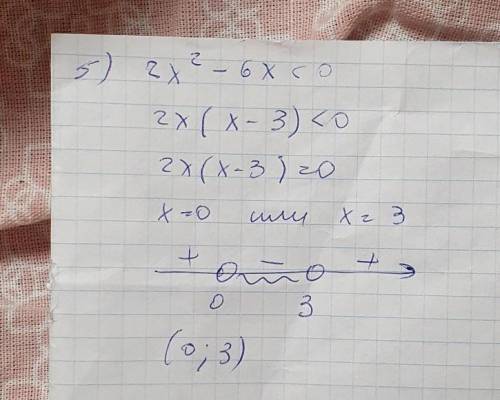 5) 2x² - 6x < 0
2x(x - 3) < 0
2x(x - 3) = 0
x = 0 или x = 3
+ - +
0 3
(0; 3)